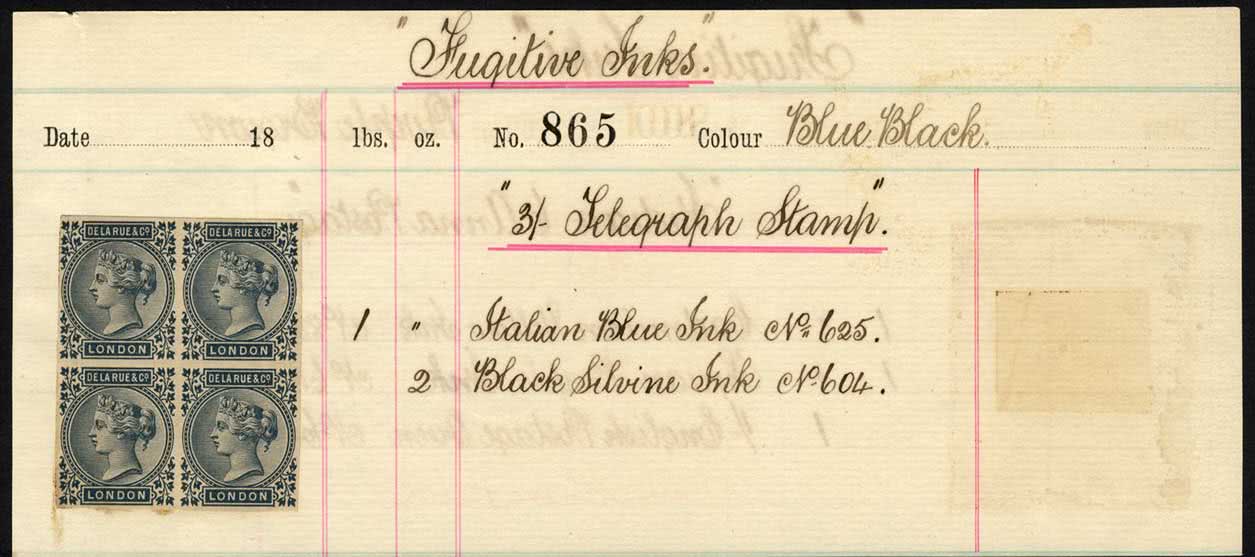 "Fugitive Inks".
Date 18 lbs. oz. No. 865 Colour Blue Black.
"3/- Telegraph Stamp".
DE LA RUE & Co DE LA RUE & Co
LONDON LONDON
1 " Italian Blue Ink No 625.
2 Black Silvine Ink No 604.
DE LA RUE & Co DE LA RUE & Co
LONDON LONDON